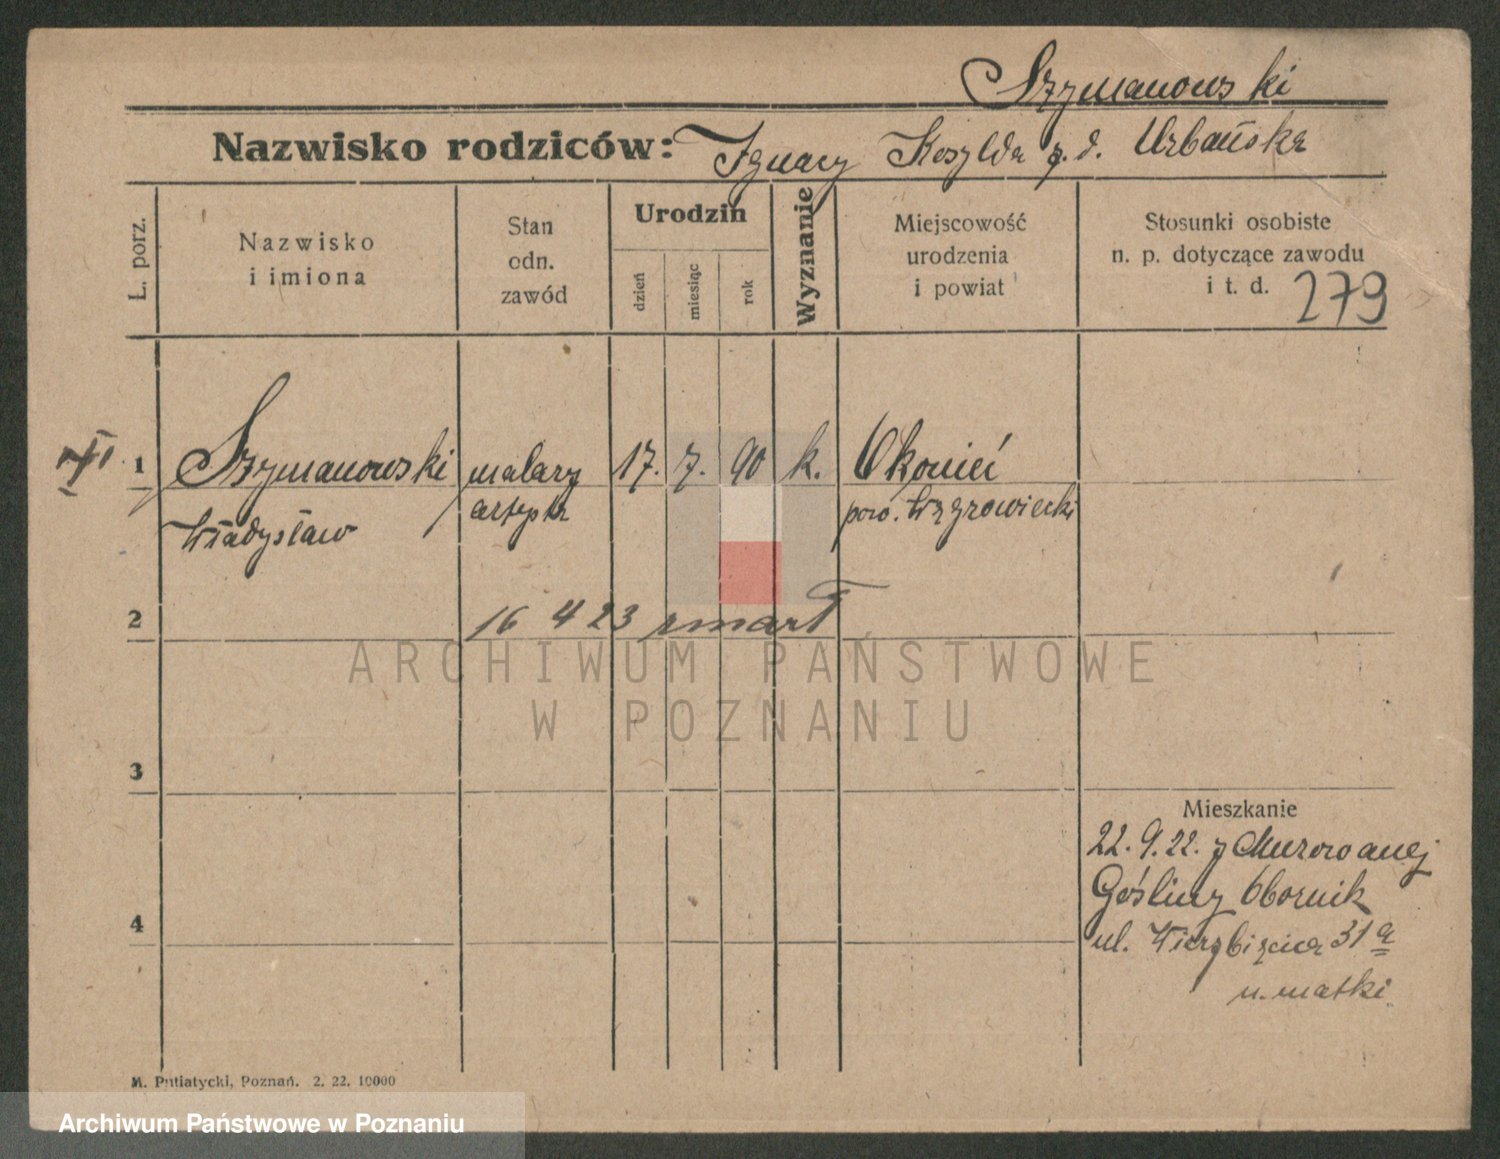 Szymanowski
Nazwisko rodziców: Ignacy Kosylda z. d. Urbańska
L. porz.
Nazwisko
i imiona
Stan
odn.
zawód
Urodzin
dzień
miesiąc
rok
Wyznanie
Miejscowość
urodzenia
i powiat
Stosunki osobiste
n. p. dotyczące zawodu
i t. d. 279
1 Szymanowski malarz 17. 7. 90 k. Okonieć
Władysław artysta pow. Wągrowiecki
2 16 4 23 zmarł
ARCHIWUM PAŃSTWOWE
W POZNANIU
3
Mieszkanie
22. 9. 22. z Murowanej
Gośliny Obornik
4
ul. Wierzbięcice 31 a
u. matki.
M. Putiatycki, Poznań. 2. 22. 10000
Archiwum Państwowe w Poznaniu